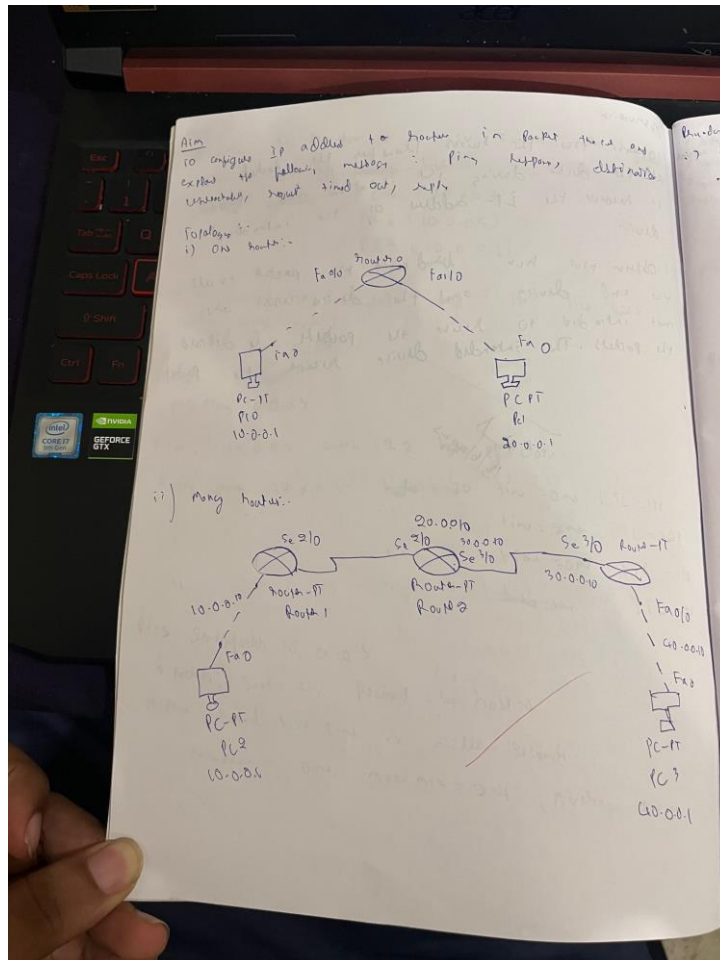 acer
Esc
1
Tab
Q
Caps Lock
A
Shift
Ctrl
Fn
intel
CORE i7
NVIDIA
GEFORCE
GTX
Aim
To configure IP address to router in Packet tracer and
explore the following messages: Ping response, destination
unreachable, request timed out, reply
Topology :-
i) One router :-
router 0
Fa0/0
Fa1/0
Fa0
Fa0
PC-PT
PC0
10.0.0.1
PC PT
PC1
20.0.0.1
ii) Many router :-
20.0.0.10
Se 2/0
Se 2/0
30.0.0.10
Se 3/0
Se 3/0
Router-PT
10.0.0.10
router-PT
Router 1
Router-PT
Router 2
30.0.0.10
Fa0/0
40.0.0.10
Fa0
Fa0
PC-PT
PC2
10.0.0.1
PC-PT
PC3
40.0.0.1